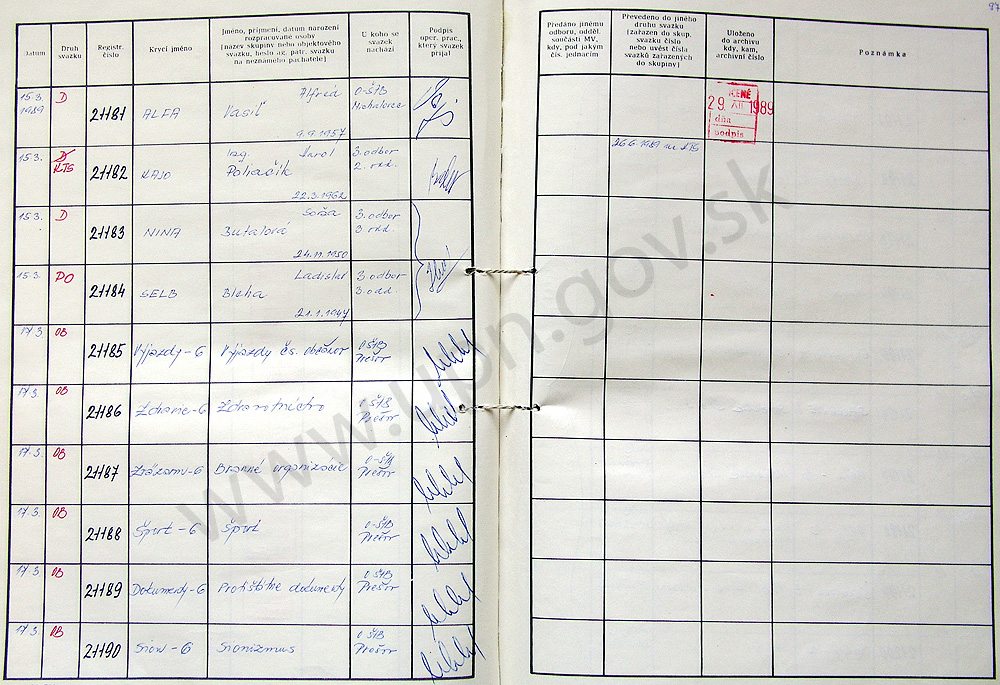 97
Datum
Druh svazku
Registr. číslo
Krycí jméno
Jméno, příjmení, datum narození
rozpracované osoby
[název skupiny nebo objektového
svazku, heslo ag. pátr. svazku
na neznámého pachatele]
U koho se
svazek
nachází
Podpis
oper. prac.,
který svazek
přijal
Předáno jinému
odboru, odděl.
součásti MV,
kdy, pod jakým
čís. jednacím
Převedeno do jiného
druhu svazku
[zařazen do skup.
svazku číslo
nebo uvést čísla
svazků zařazených
do skupiny]
Uloženo
do archivu
kdy, kam,
archivní číslo
Poznámka
15.3.
1989
D
21181
ALFA
Alfréd
Vasiľ
9.9.1957
O-ŠtB
Michalovce
29. XII 1989
dňa
podpis
15.3.
D
KTS
21182
KAJO
Ing. Karol
Poliačik
22.3.1962
3. odbor
2. odd.
26.6.1989 na KTS
15.3.
D
21183
NINA
Soňa
Butalová
24.11.1950
3. odbor
3. odd.
15.3.
PO
21184
SELB
Ladislav
Bleha
21.1.1947
3. odbor
3. odd.
17.3.
OB
21185
Výjazdy-6
Výjazdy čs. občanov
O-ŠtB
Prešov
17.3.
OB
21186
Zdravie-6
Zdravotníctvo
O-ŠtB
Prešov
17.3.
OB
21187
Branné organizácie
O-ŠtB
Prešov
17.3.
OB
21188
Šport-6
Šport
O-ŠtB
Prešov
17.3.
OB
21189
Dokumenty-6
Protištátne dokumenty
O-ŠtB
Prešov
17.3.
OB
21190
Sion-6
Sionizmus
O-ŠtB
Prešov
www.upn.gov.sk